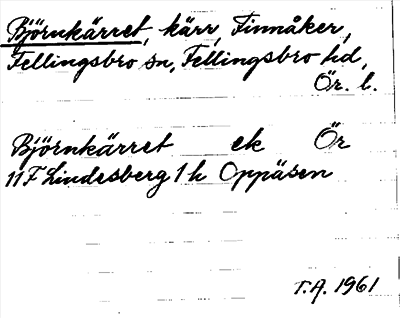 Björnkärret, kärr, Finnåker,
Fellingsbro sn, Fellingsbro hd,
Ör. l.
Björnkärret ek Ör
11F Lindesberg 1 h Oppäsen
T.A. 1961